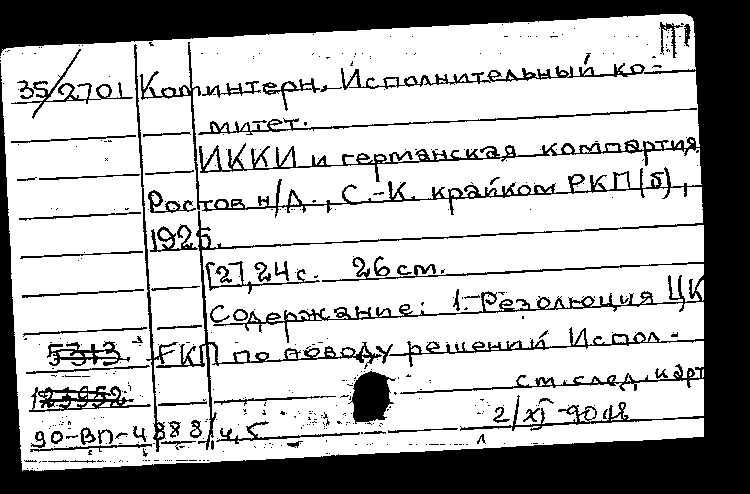 П
35/2701 Коминтерн. Исполнительный ко-
митет.
ИККИ и германская компартия
Ростов н/Д., С.-К. крайком РКП(б),
1925.
[27,24 с. 26 см.
Содержание: 1. Резолюция ЦК
5313. ГКП по поводу решений Испол-
см. след. карт
123952
2/XI-90
90-ВП-4388/4,5